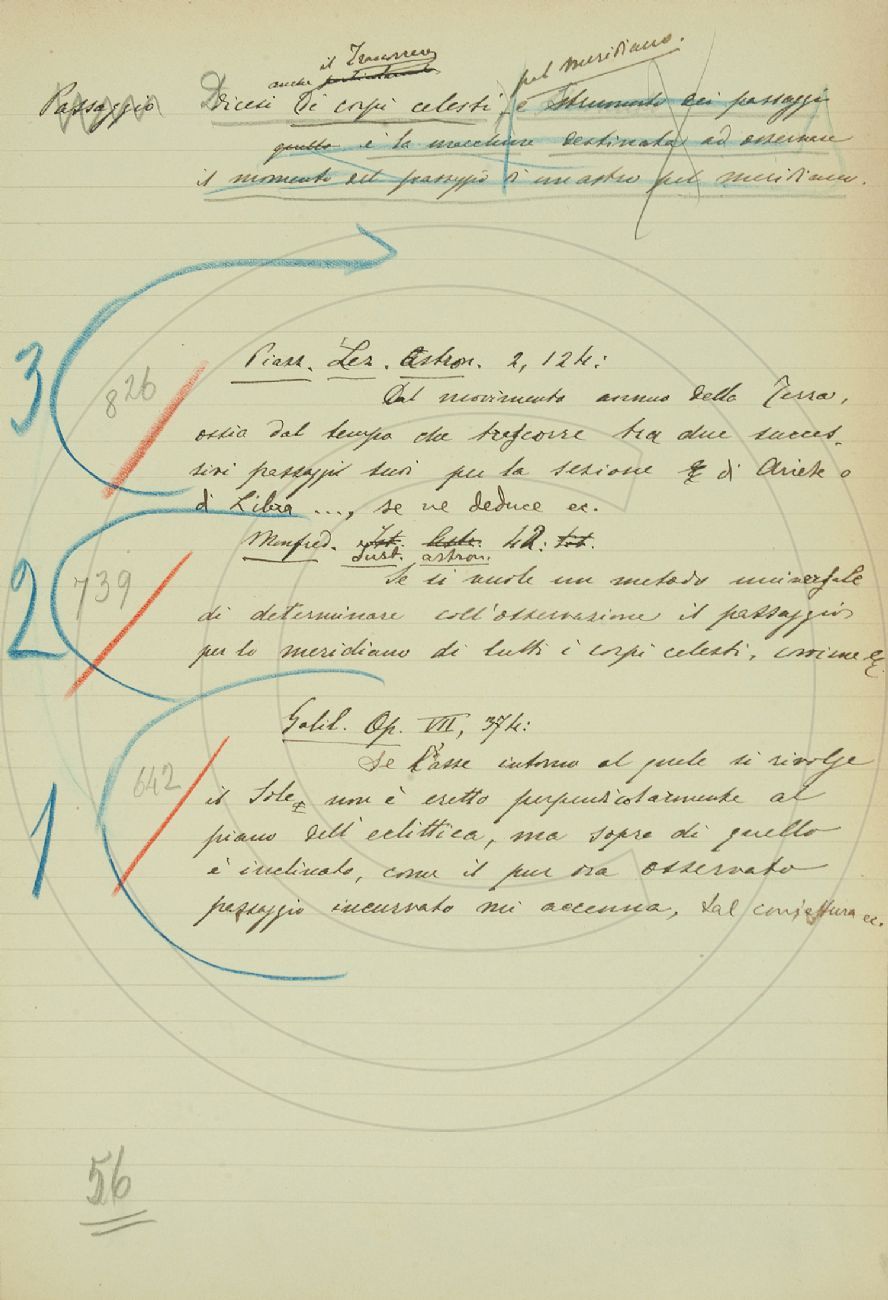 pel meridiano.
il Trascorrere
anche particolarmente
Passaggio Dicesi Di corpi celesti, e Strumento dei passaggi
quello è la macchina destinata ad osservare
il momento del passaggio di un astro pel meridiano.
3
826
Piazz. Lez. Astron. 2, 124:
Dal movimento annuo della Terra,
ossia dal tempo che trascorre tra due succes-
sivi passaggi suoi per la sezione di Ariete o
di Libra ..., se ne deduce ec.
Manfred. Ist. Astr. 42.
Inst. astron.
2
739
Se si vuole un metodo universale
di determinare coll'osservazione il passaggio
per lo meridiano di tutti i corpi celesti, conviene ec.
Galil. Op. VII, 374:
642
Se l'asse intorno al quale si rivolge
il Sole, non è eretto perpendicolarmente al
1
piano dell'eclittica, ma sopra di quello
è inclinato, come il pur ora osservato
passaggio incurvato mi accenna, tal conjettura ec.
56